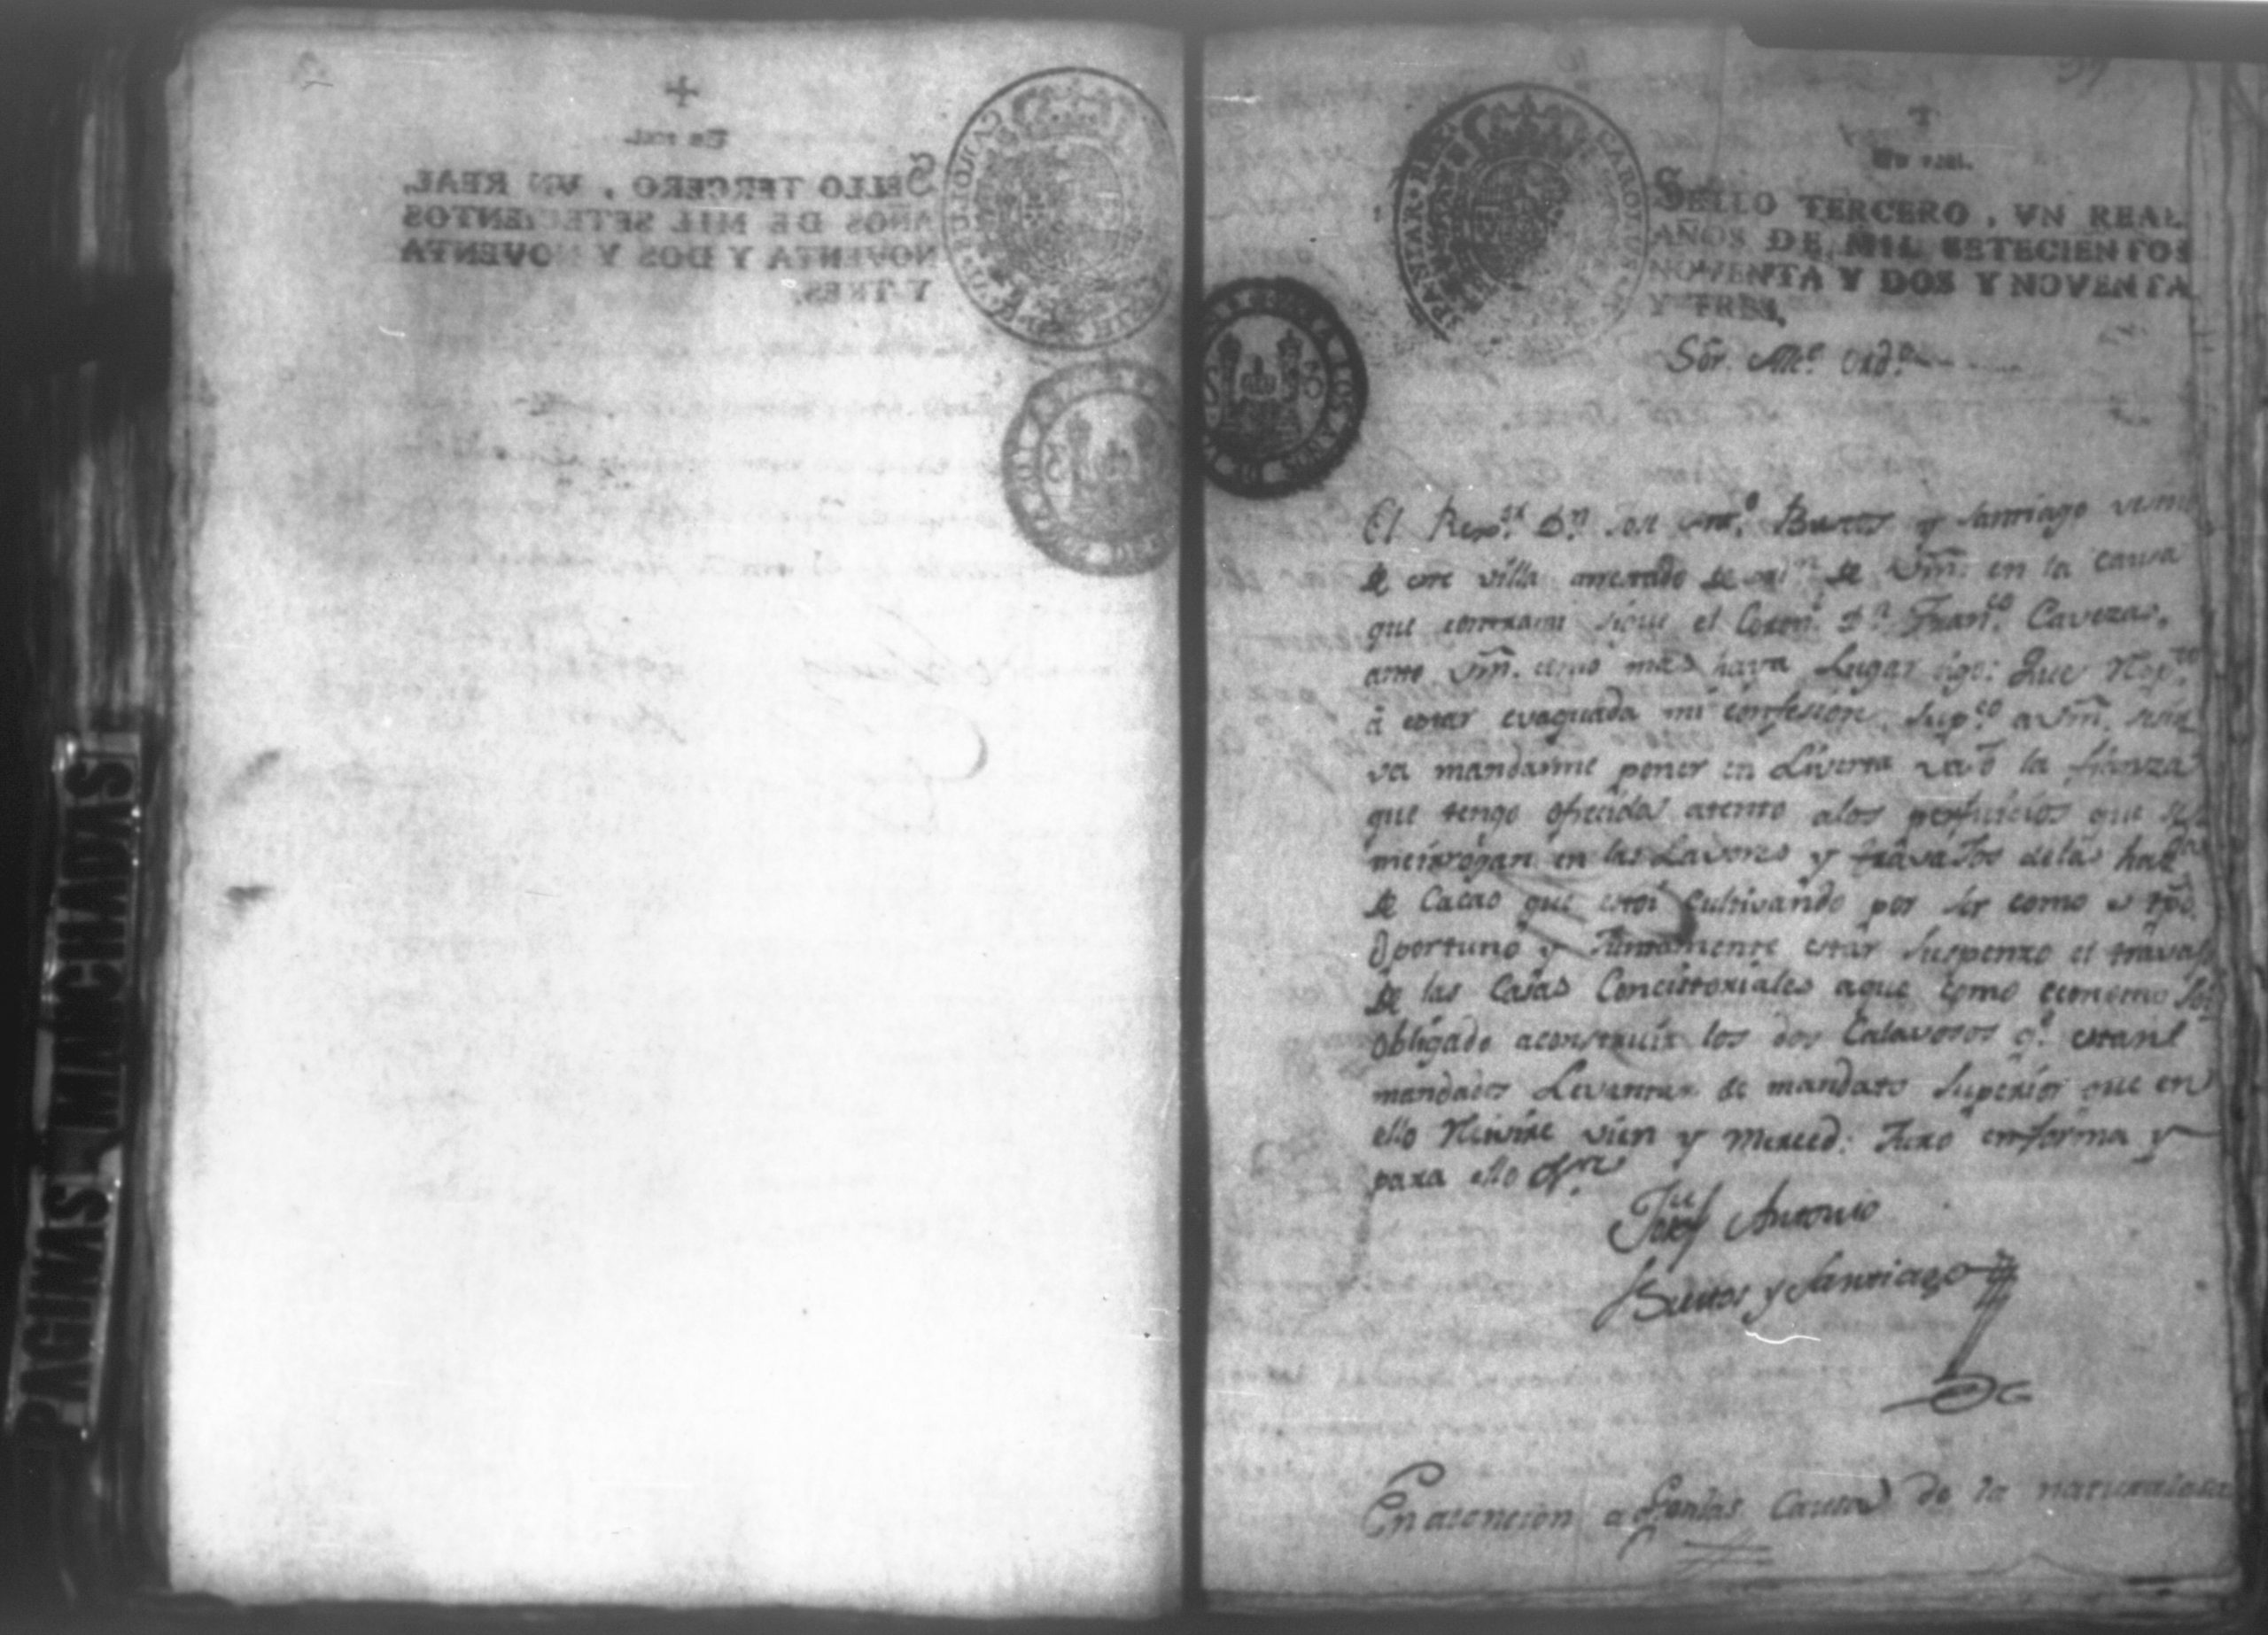 PAGINAS MANCHADAS
Un real.
SELLO TERCERO, VN REAL
AÑOS DE MIL SETECIENTOS
NOVENTA Y DOS Y NOVENTA
Y TRES.
Sōr. Alce. Ordo.
El Rexor. Dn. José Anto. Bustos y Santiago vesino
de este villa arrestado de orn. de Vm̃. en la causa
que contrami sigue el Coronl. Dn. Franco. Cavezas,
ante Vm̃. como mas haya Lugar digo: Que Respto.
à estar evaquada mi confesion Supco. a Vm̃. se sir
va mandarme poner en Liverta vajo la fianza
que tengo ofrecida atento alos perjuicios que se
meirrogan en las Lavores y travaJos delas hasdas
de Cacao que estoi cultivando por ser como es tpõ.
Oportuno y Juntamente estar Suspenzo el travajo
de las Casas Concistoriales aque como economo soi
obligado aconstruir los dos Calavosos qe. estan
mandados Levantar de mandato Superior que en
ello Resivire vien y merced: Juro en forma y
para ello &ra
Josef Antonio
Bustos y Santiago
En atencion a q. enlas Causas de la naturalesa